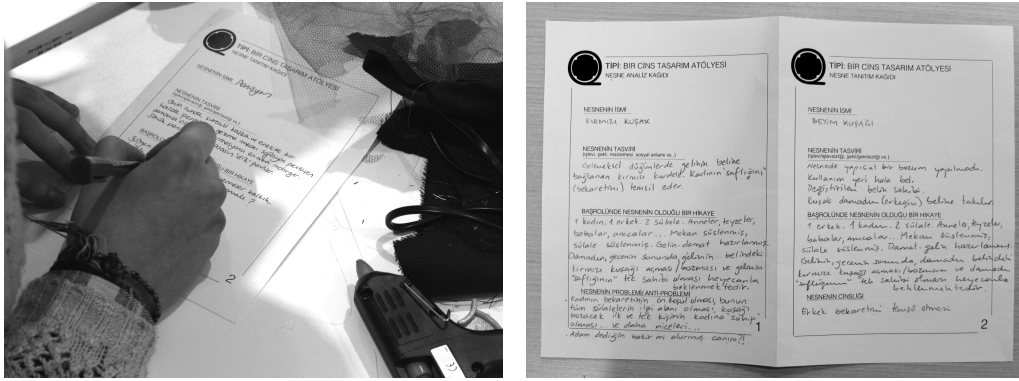 TİPİ: BİR CİNS TASARIM ATÖLYESİ
NESNE TANITIM KAĞIDI
NESNENİN İSMİ
Penisyen
NESNENİN TASVİRİ
BAŞROLÜ
OLDUĞU BİR HİKAYE
2
TİPİ: BİR CİNS TASARIM ATÖLYESİ
NESNE ANALİZ KAĞIDI
NESNENİN İSMİ
KIRMIZI KUŞAK
NESNENİN TASVİRİ
(işlevi, şekli, malzemesi, sosyal anlamı vs.)
Geleneksel düğünlerde gelinin beline
bağlanan kırmızı kurdele. Kadının "saflığını"
(bekaretini) temsil eder.
BAŞROLÜNDE NESNENİN OLDUĞU BİR HİKAYE
1 kadın. 1 erkek. 2 sülale. Anneler, teyzeler,
babalar, amcalar... Mekan süslenmiş,
sülale süslenmiş. Gelin-damat hazırlanmış.
Damadın, gecenin sonunda, gelinin belindeki
kırmızı kuşağı açması/bozması ve gelinin
"saflığının" tek sahibi olması heyecanla
beklenmektedir.
NESNENİN PROBLEMİ/ANTİ-PROBLEMİ
. Kadının bekaretinin ön koşul olması, bunun
tüm sülalelerin ilgi alanı olması, kuşağı
bozacak ilk ve tek kişinin kadına "sahip"
olması... ve daha niceleri...
. Adam dediğin bakir mi olurmuş canım?!
1
TİPİ: BİR CİNS TASARIM ATÖLYESİ
NESNE TANITIM KAĞIDI
NESNENİN İSMİ
BEYİM KUŞAĞI
NESNENİN TASVİRİ
(işlevi/işlevsizliği, şekli/şekilsizliği vs.)
Nesnede yapısal bir bozum yapılmadı.
Kullanım yeri hala bel.
Değiştirilen belin sahibi.
Kuşak damadın (erkeğin) beline takılır.
BAŞROLÜNDE NESNENİN OLDUĞU BİR HİKAYE
1 erkek. 1 kadın. 2 sülale. Anneler, teyzeler,
babalar, amcalar... Mekan süslenmiş,
sülale süslenmiş. Damat-gelin hazırlanmış.
Gelinin, gecenin sonunda, damadın belindeki
kırmızı kuşağı açması/bozması ve damadın
"saflığının" tek sahibi olması heyecanla
beklenmektedir.
NESNENİN CİNSLİĞİ
Erkek bekaretini temsil etmesi
2